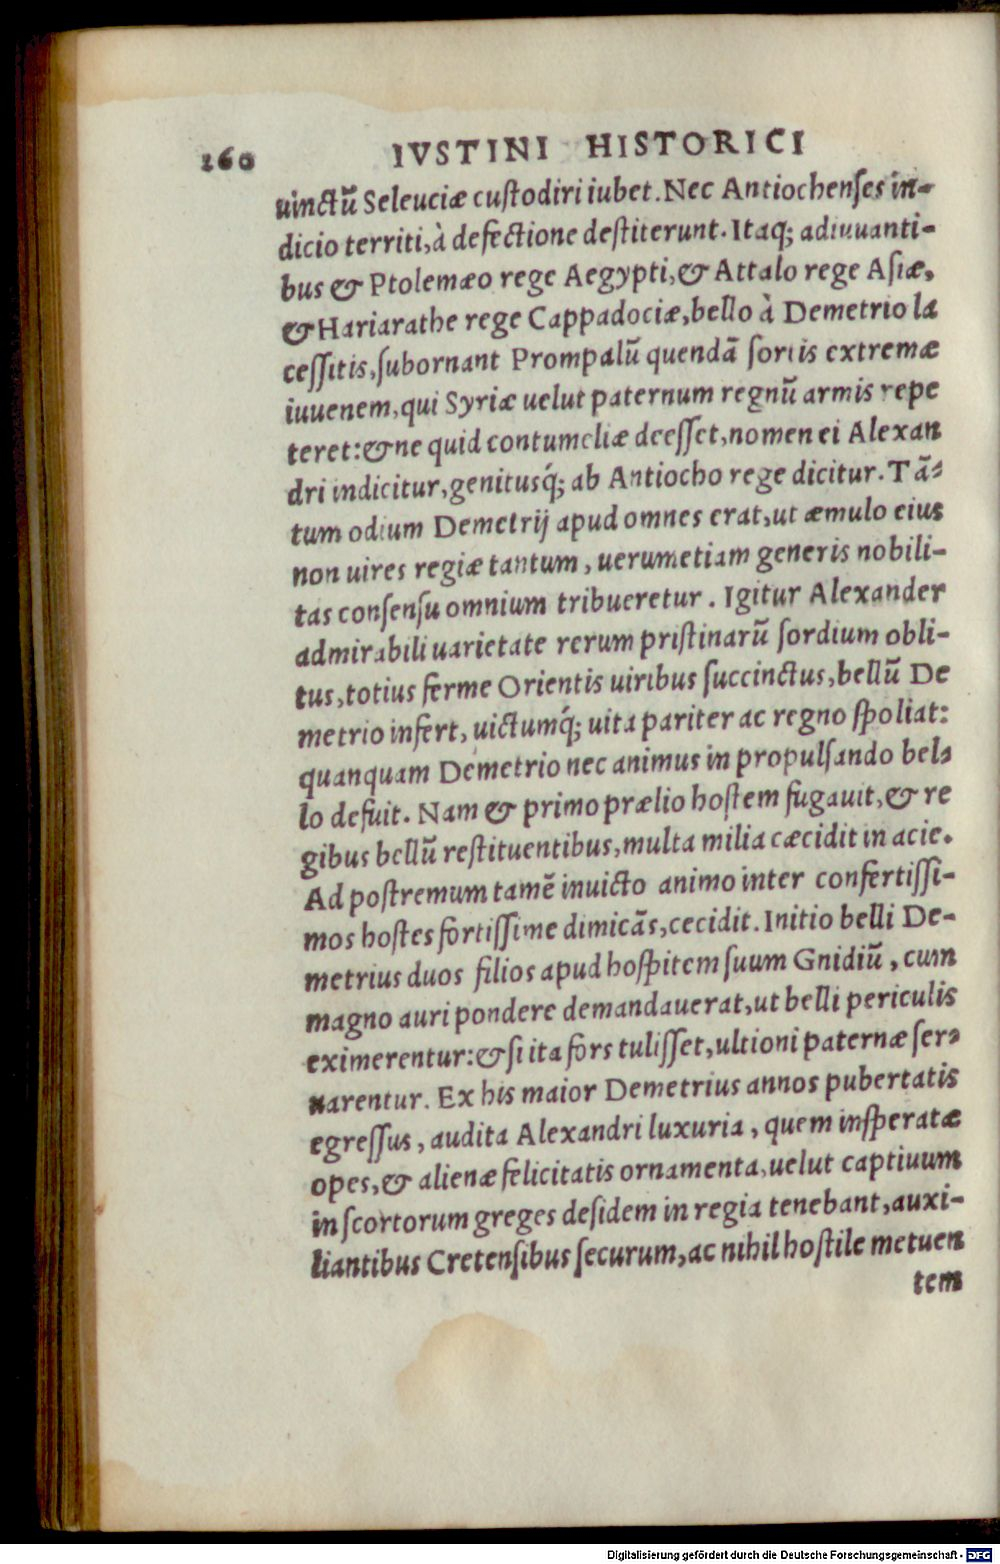 160 IVSTINI HISTORICI
uinctũ Seleuciæ cuſtodiri iubet. Nec Antiochenſes in-
dicio territi, à defectione deſtiterunt. Itaq; adiuuanti-
bus & Ptolemæo rege Aegypti, & Attalo rege Aſiæ,
& Hariarathe rege Cappadociæ, bello à Demetrio la
ceſſitis, ſubornant Prompalũ quendã ſortis extremæ
iuuenem, qui Syriæ uelut paternum regnũ armis repe
teret: & ne quid contumeliæ deeſſet, nomen ei Alexan
dri indicitur, genitusq́; ab Antiocho rege dicitur. Tã-
tum odium Demetrij apud omnes erat, ut æmulo eius
non uires regiæ tantum, uerumetiam generis nobili-
tas conſenſu omnium tribueretur. Igitur Alexander
admirabili uarietate rerum priſtinarũ ſordium obli-
tus, totius ferme Orientis uiribus ſuccinctus, bellũ De
metrio infert, uictumq́; uita pariter ac regno ſpoliat:
quanquam Demetrio nec animus in propulſando bel-
lo defuit. Nam & primo prælio hoſtem fugauit, & re
gibus bellũ reſtituentibus, multa milia cæcidit in acie.
Ad poſtremum tamẽ inuicto animo inter confertiſſi-
mos hoſtes fortiſſime dimicãs, cecidit. Initio belli De-
metrius duos filios apud hoſpitem ſuum Gnidiũ, cum
magno auri pondere demandauerat, ut belli periculis
eximerentur: & ſi ita fors tuliſſet, ultioni paternæ ſer-
uarentur. Ex his maior Demetrius annos pubertatis
egreſſus, audita Alexandri luxuria, quem inſperatæ
opes, & alienæ felicitatis ornamenta, uelut captiuum
in ſcortorum greges deſidem in regia tenebant, auxi-
liantibus Cretenſibus ſecurum, ac nihil hoſtile metuen
tem
Digitalisierung gefördert durch die Deutsche Forschungsgemeinschaft - DFG